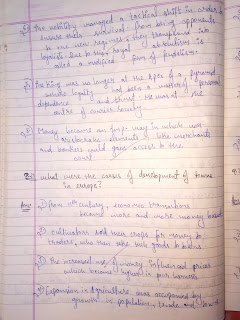 6) The nobility managed a tactical shift in order to
ensure their survival from being opponents
to the new regimes, they transformed into
loyalists. Due to this, royal absolutism is
called a modified form of feudalism.
7) The king was no longer at the apex of a pyramid
where loyalty had been a matter of personal
dependence and trust. He was at the
centre of
8) Money became an way in which non
aristocratic elements like merchants
and bankers could gain access to the
court.
what were the causes of development of towns
in europe?
Ans: 1) from 11th century, economic transactions
became more and more money based
2) cultivators sold their crops for money to
traders, who then take such goods to towns
3) The increased use of money influenced prices
which became highest in poor harvests
4) Expansion in Agriculture was accompanied by
growth in population, trade and towns